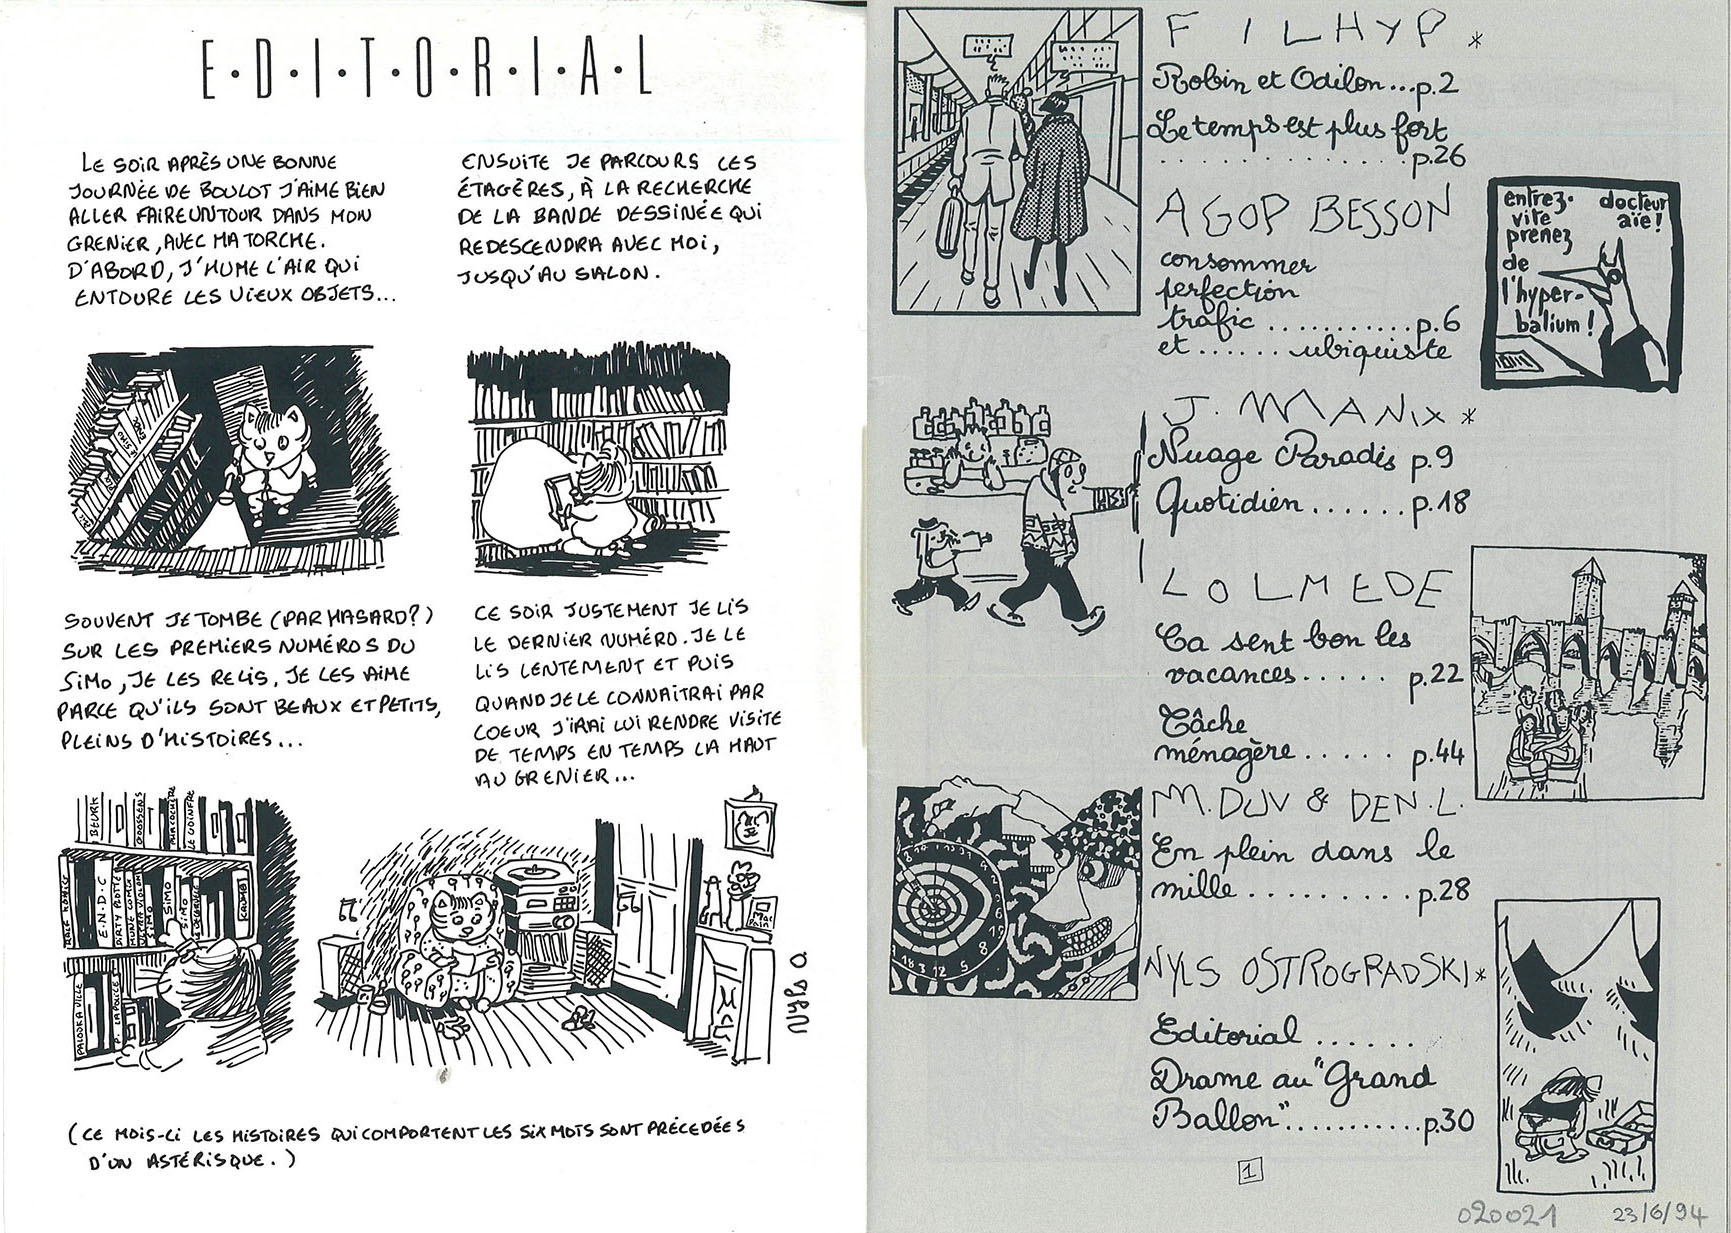 E.D.I.T.O.R.I.A.L
LE SOIR APRÈS UNE BONNE
JOURNÉE DE BOULOT J'AIME BIEN
ALLER FAIRE UN TOUR DANS MON
GRENIER, AVEC MA TORCHE.
D'ABORD, J'HUME L'AIR QUI
ENTOURE LES VIEUX OBJETS...
ENSUITE JE PARCOURS LES
ÉTAGÈRES, À LA RECHERCHE
DE LA BANDE DESSINÉE QUI
REDESCENDRA AVEC MOI,
JUSQU'AU SALON.
SOUVENT JE TOMBE (PAR HASARD?)
SUR LES PREMIERS NUMÉROS DU
SIMO, JE LES RELIS, JE LES AIME
PARCE QU'ILS SONT BEAUX ET PETITS,
PLEINS D'HISTOIRES...
CE SOIR JUSTEMENT JE LIS
LE DERNIER NUMÉRO. JE LE
LIS LENTEMENT ET PUIS
QUAND JE LE CONNAÎTRAI PAR
COEUR J'IRAI LUI RENDRE VISITE
DE TEMPS EN TEMPS LA HAUT
AU GRENIER...
BEURK
GOOSSENS
LE GOINFRE
E.N.D.C
DIRTY PLOTTE
SIMO
SIMO
SIMO
PALOOKA VILLE
P. LAPOLICE
NYLS O
(CE MOIS-CI LES HISTOIRES QUI COMPORTENT LES SIX MOTS SONT PRÉCEDÉES
D'UN ASTÉRISQUE.)
FILHYP *
Robin et Odilon...p.2
Le temps est plus fort
...............p.26
AGOP BESSON
consommer
perfection
trafic ...........p.6
et ...... ubiquiste
entrez-
vite
prenez
de
l'hyper-
balium!
docteur
aïe!
J. MANIX *
Nuage Paradis p.9
Quotidien ......p.18
LOLMEDE
Ca sent bon les
vacances..... p.22
Tâche
ménagère..... p.44
M. DUV & DEN. L.
En plein dans le
mille..........p.28
NYLS OSTROGRADSKI *
Editorial ......
Drame au "Grand
Ballon"...........p.30
1
020021 23/6/94